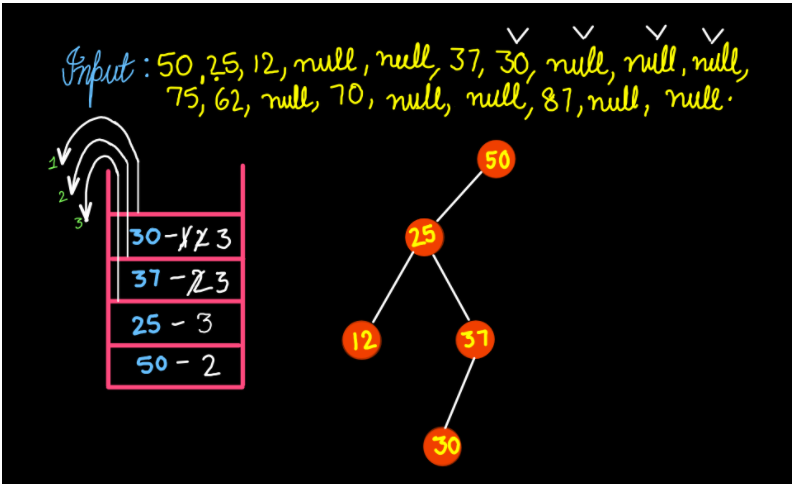 Input : 50, 25, 12, null, null, 37, 30, null, null, null,
75, 62, null, 70, null, null, 87, null, null.
1
2
3
30 - 1 2 3
37 - 2 3
25 - 3
50 - 2
50
25
12
37
30